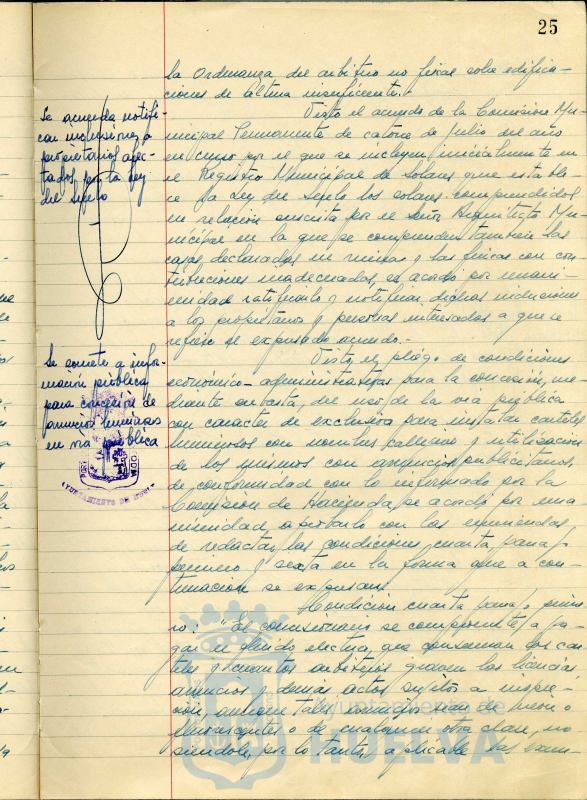 25
la Ordenanza del arbitrio no fiscal sobre edifica-
ciones de altura insuficiente.
Se acuerda notifi-
car inclusiones a
propietarios afec-
tados por la Ley
del Suelo
Visto el acuerdo de la Comisión Mu-
nicipal Permanente de catorce de Julio del año
en curso por el que se incluyen inicialmente en
el Registro Municipal de Solares que estable-
ce la Ley del Suelo los solares comprendidos
en relación suscrita por el Señor Arquitecto Mu-
nicipal en la que se comprenden también las
casas declaradas en ruinas y las fincas con cons-
trucciones inadecuadas, se acordó por unani-
midad ratificarlo y notificar dichas inclusiones
a los propietarios y personas interesadas a que se
refiere el expresado acuerdo.-
Se somete a infor-
mación pública
para concesión de
anuncios luminosos
en vía pública
Visto el pliego de condiciones
económico-administrativas para la concesión, me-
diante subasta, del uso de la vía pública
con carácter de exclusiva para instalar carteles
luminosos con nombres callejero y utilización
de los mismos con anuncios publicitarios,
de conformidad con lo informado por la
Comisión de Hacienda, se acordó por una-
nimidad aprobarlo con las enmiendas,
de redactar las condiciones cuarta párrafo
primero y sexta en la forma que a con-
tinuación se expresan:
Condición cuarta párrafo prime-
ro: "El concesionario se compromete a pa-
gar el fluido eléctrico que consuman los car-
teles y cuantos arbitrios graven las licencias
anuncios y demás actos sujetos a inspec-
ción
o de cualquier otra clase, no
siéndole, por lo tanto, aplicable las exen-
AYUNTAMIENTO DE
Ayuntamiento de
HUELVA